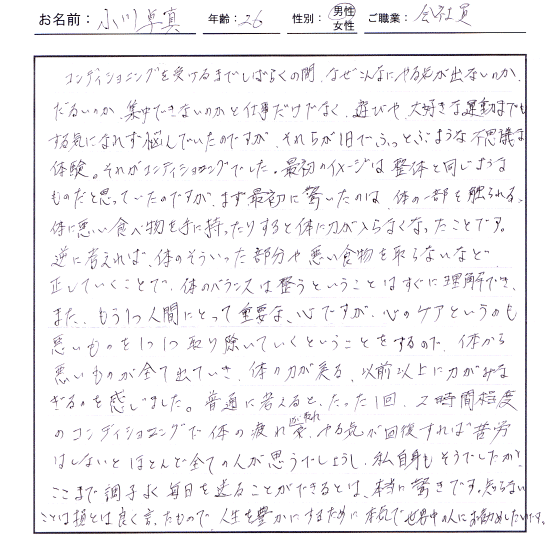 お名前： 小川 卓真 年齢：26 性別： 男性 女性 ご職業： 会社員
コンディショニングを受けるまでしばらくの間、なぜこんなにやる気が出ないのか、
だるいのか、集中できないのかと仕事だけでなく、遊びや、大好きな運動までも
する気になれず悩んでいたのですが、それらが1日でふっとぶような不思議な
体験。それがコンディショニングでした。最初のイメージは整体と同じような
ものだと思っていたのですが、まず最初に驚いたのは、体の一部を触られる、
体に悪い食べ物を手に持ったりすると体に力が入らなくなったことです。
逆に考えれば、体のそういった部分や悪い食物を取らないなど
正していくことで、体のバランスは整うということはすぐに理解でき、
また、もう1つ人間にとって重要な、心ですが、心のケアというのも
悪いものを1つ1つ取り除いていくということをするので、体から
悪いものが全て出ていき、体の力が戻る、以前以上に力がみな
ぎるのを感じました。普通に考えると、たった1回、2時間程度
のコンディショニングで体の疲れ、心の疲れ、やる気が回復すれば苦労
はしないとほとんど全ての人が思うでしょうし、私自身もそうでしたが
ここまで調子よく毎日を送ることができるとは、本当に驚きです。知らない
ことは損とは良く言ったもので、人生を豊かにするために本気で世界中の人にお勧めしたいです。